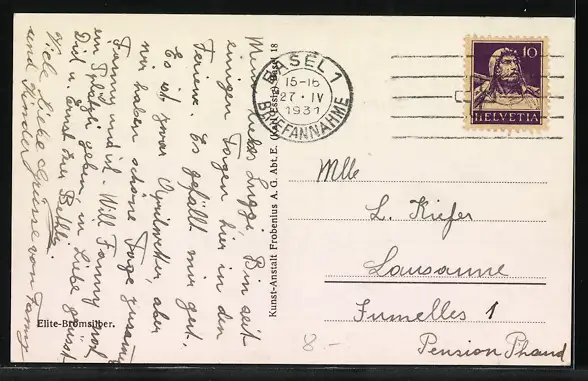 Mein liebes Luggi, Bin seit
einigen Tagen hier in den
Ferien. Es gefällt mir gut.
Es ist zwar Aprilwetter, aber
wir haben schöne Tage zusammen
Fanny und ich. Will Fanny noch
ein Plätzli geben in Liebe grüsst
Dich u. Ernst Euer
Viele liebe Grüsse von Fanny
und Kinder
Elite-Bromsilber.
Kunst-Anstalt Frobenius A. G. Abt. E. (Karl Essig) Basel 18
BASEL 1
15-16
27·IV
1931
BRIEFANNAHME
10
HELVETIA
Mlle
L. Kiefer
Lausanne
Jumelles 1
Pension Phand
8.-